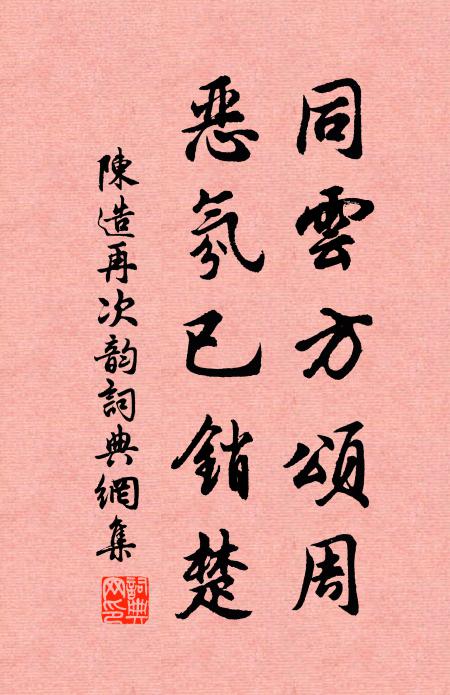 同雲方頌周
惡氛已銷楚
陳造再次韵詞典網集
詞典网印